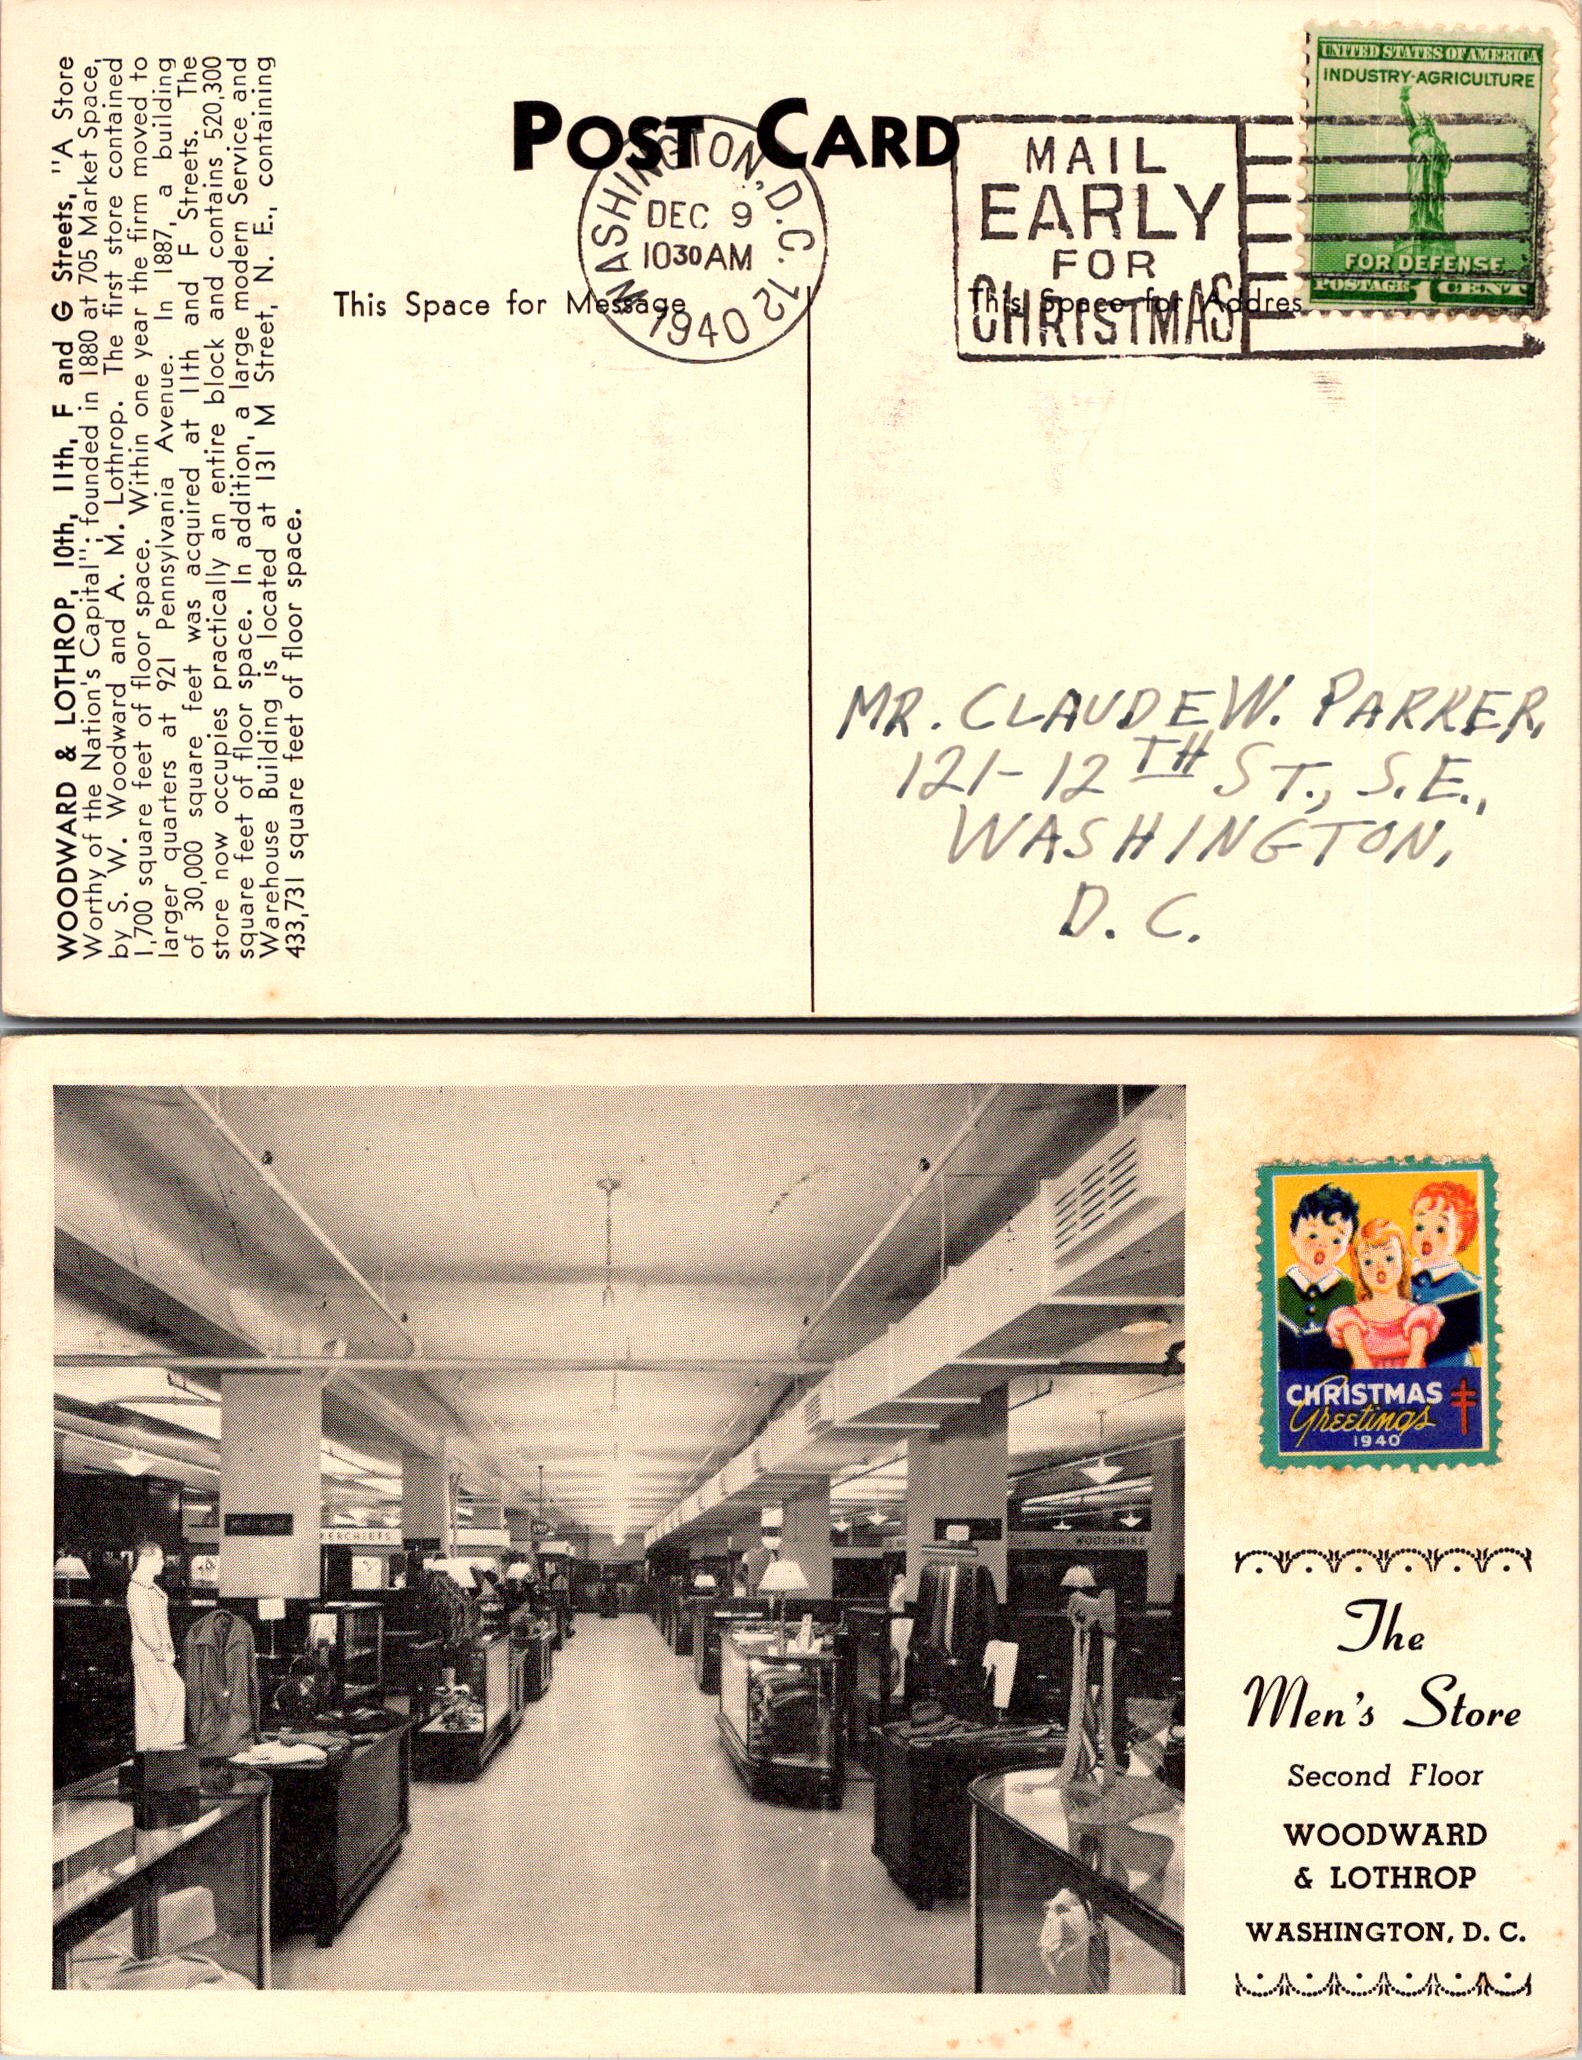 WOODWARD & LOTHROP, 10th, 11th, F and G Streets, "A Store
Worthy of the Nation's Capital"; founded in 1880 at 705 Market Space,
by S. W. Woodward and A. M. Lothrop. The first store contained
1,700 square feet of floor space. Within one year the firm moved to
larger quarters at 921 Pennsylvania Avenue. In 1887, a building
of 30,000 square feet was acquired at 11th and F Streets. The
store now occupies practically an entire block and contains 520,300
square feet of floor space. In addition, a large modern Service and
Warehouse Building is located at 131 M Street, N. E., containing
433,731 square feet of floor space.
POST CARD
This Space for Message
This Space for Addres
WASHINGTON, D.C. 12
DEC 9
1030 AM
1940
MAIL
EARLY
FOR
CHRISTMAS
UNITED STATES OF AMERICA
INDUSTRY·AGRICULTURE
FOR DEFENSE
POSTAGE 1 CENT
MR. CLAUDE W. PARKER,
121-12TH ST., S.E.,
WASHINGTON,
D. C.
KERCHIEFS
WOODSHIRE
CHRISTMAS
Greetings
1940
The
Men's Store
Second Floor
WOODWARD
& LOTHROP
WASHINGTON, D. C.